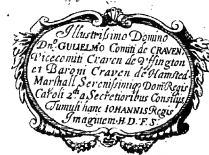 Illustrissimo Domino
Dno. GULIELMO Comiti de CRAVEN,
Vicecomiti Craven de Vffington
et Baroni Craven de Hamsted
Marshall Serenissimoq Dom. Regis
Caroli 2do. a Secretioribus Consilijs
Tumuli hanc IOHANNIS Regis
Imaginem. H. D. F. S.